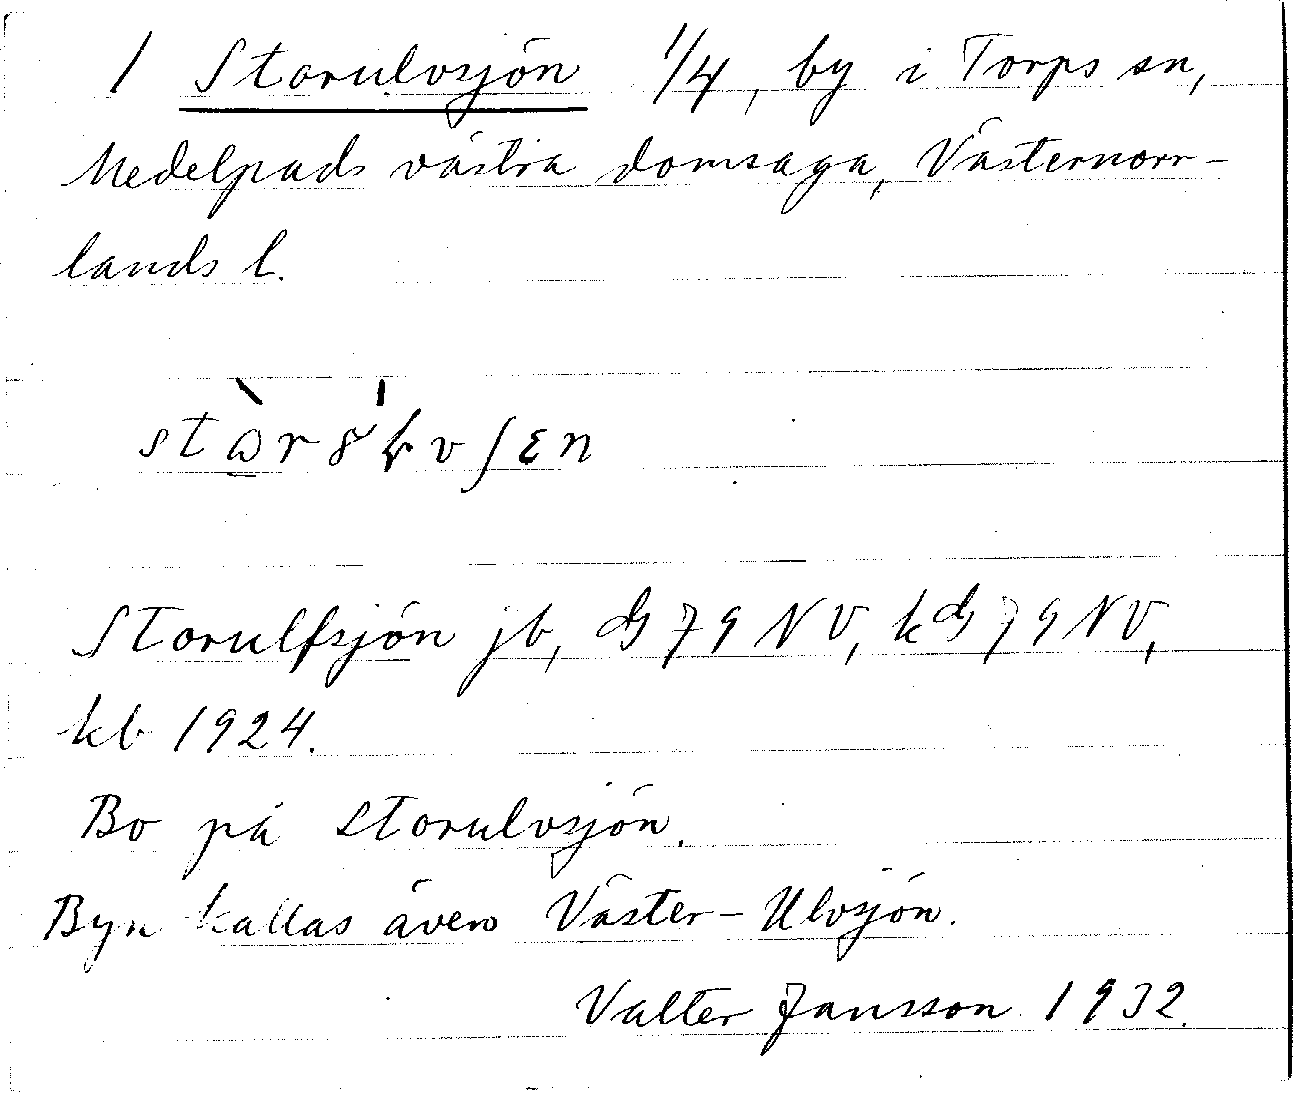 1 Storulvsjön 1/4, by i Torps sn,
Medelpads västra domsaga, Västernorr-
lands l.
Storulfsjön jb, G 79 NV, kG 79 NV,
kb 1924.
Bo på Storulvsjön.
Byn kallas även Väster-Ulvsjön.
Valter Jansson 1932.